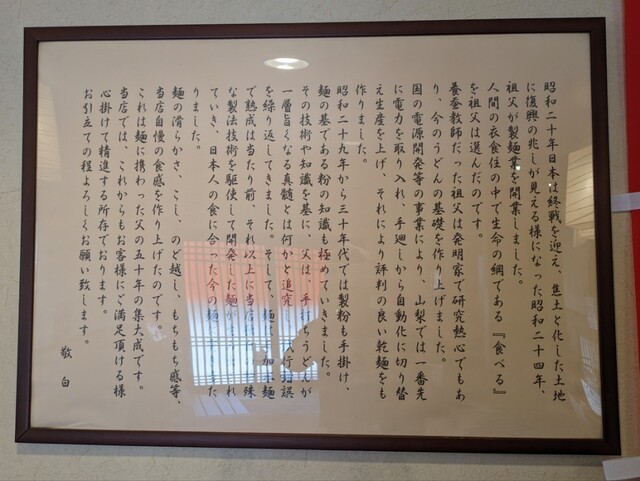 昭和二十年日本は終戦を迎え、焦土と化した土地
に復興の兆しが見える様になった昭和二十四年、
祖父が製麺業を開業しました。
人間の衣食住の中で生命の綱である『食べる』
を祖父は選んだのです。
養蚕教師だった祖父は発明家で研究熱心でもあ
り、今のうどんの基礎を作り上げました。
国の電源開発等の事業により、山梨では一番先
に電力を取り入れ、手廻しから自動化に切り替
え生産を上げ、それにより評判の良い乾麺をも
作りました。
昭和二十九年から三十年代では製粉も手掛け、
麺の基である粉の知識も極めていきました。
その技術や知識を基に、父は、手打ちうどんが
一層旨くなる真髄とは何かと追究し、試行錯誤
を繰り返してきました。そして、麺は 加水麺
で熟成は当たり前、それ以上に当店 特殊
な製法技術を駆使して開発した麺が れ
ていき、日本人の食に合った今の麺 た
りました。
麺の滑らかさ、こし、のど越し、もちもち感等、
当店自慢の食感を作り上げたのです。
これは麺に携わった父の五十年の集大成です。
当店では、これからもお客様にご満足頂ける様
心掛けて精進する所存でおります。
お引立ての程よろしくお願い致します。
敬白